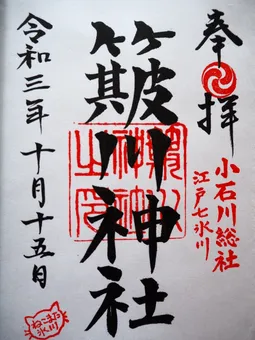 奉拝
小石川総社
江戸七氷川
簸川神社
令和三年十月十五日
ねこまた
氷川